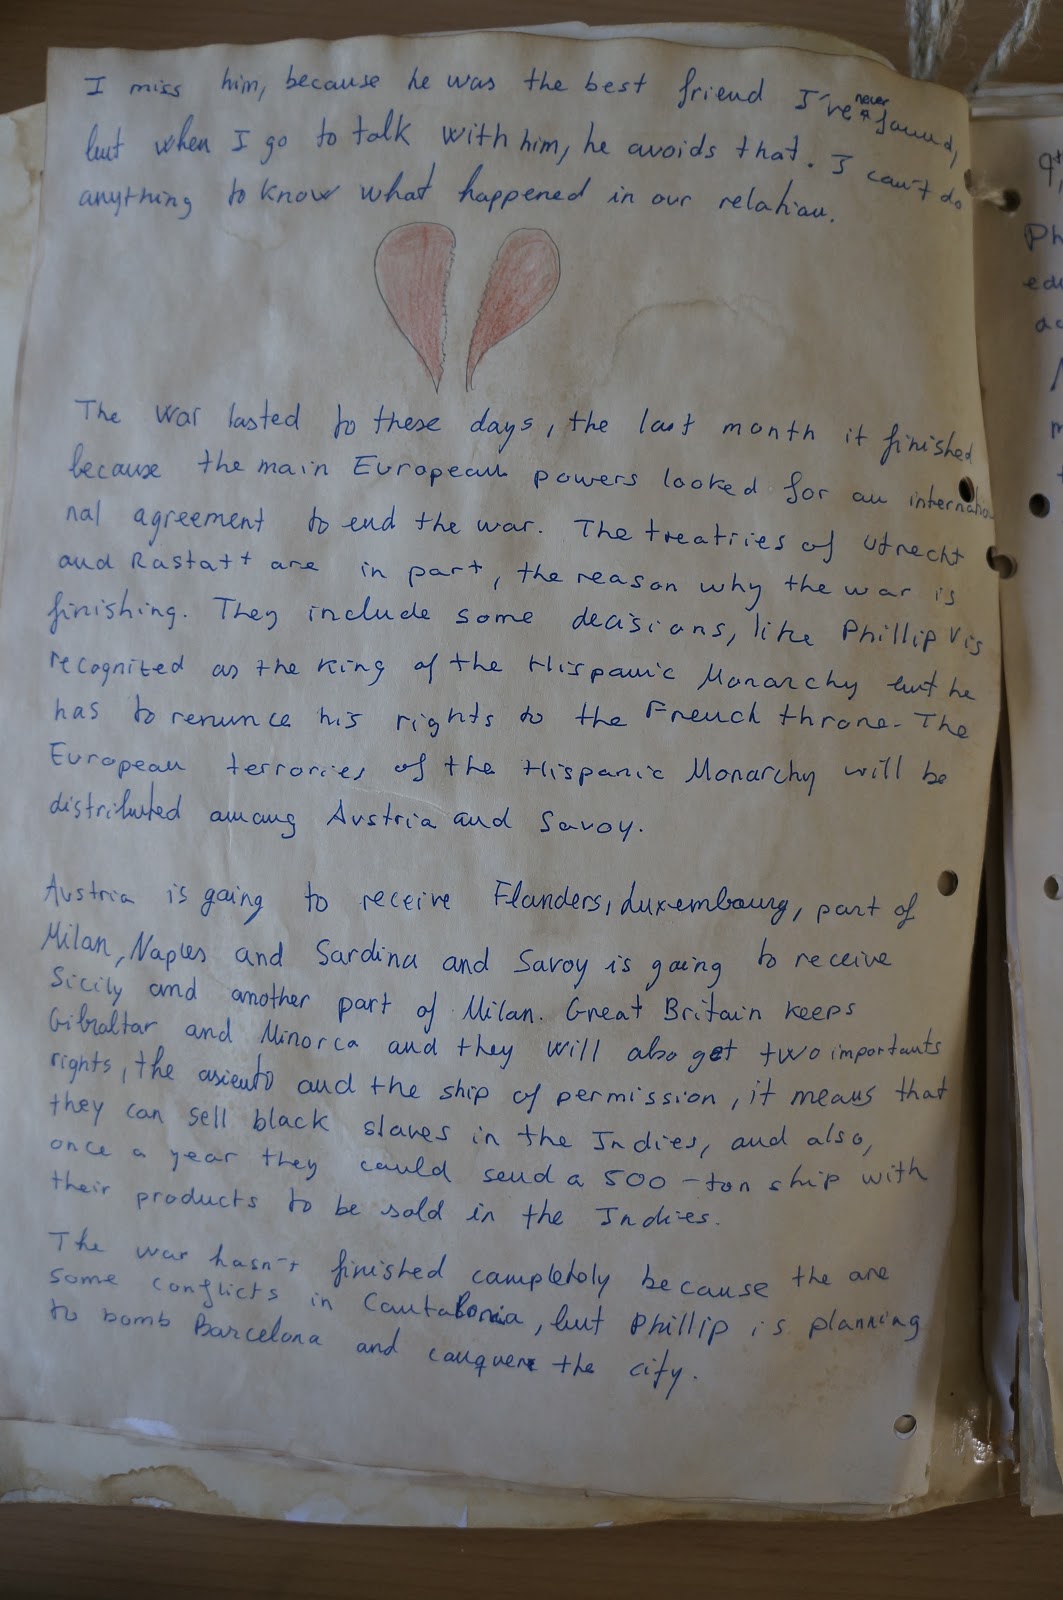 I miss him, because he was the best friend I've never found,
but when I go to talk with him, he avoids that. I can't do
anything to know what happened in our relation.
The war lasted to these days, the last month it finished
because the main European powers looked for an internatio-
nal agreement to end the war. The treatries of Utrecht
and Rastatt are in part, the reason why the war is
finishing. They include some decisions, like Phillip V is
recognized as the king of the Hispanic Monarchy but he
has to renunce his rights to the French throne. The
European terrories of the Hispanic Monarchy will be
distributed among Austria and Savoy.
Austria is going to receive Flanders, Luxembourg, part of
Milan, Naples and Sardina and Savoy is going to receive
Sicily and another part of Milan. Great Britain keeps
Gibraltar and Minorca and they will also get two importants
rights, the asiento and the ship of permission, it means that
they can sell black slaves in the Indies, and also,
once a year they could send a 500-ton ship with
their products to be sold in the Indies.
The war hasn't finished completely because the are
some conflicts in , but Phillip is planning
to bomb Barcelona and conquere the city.
9th
Ph